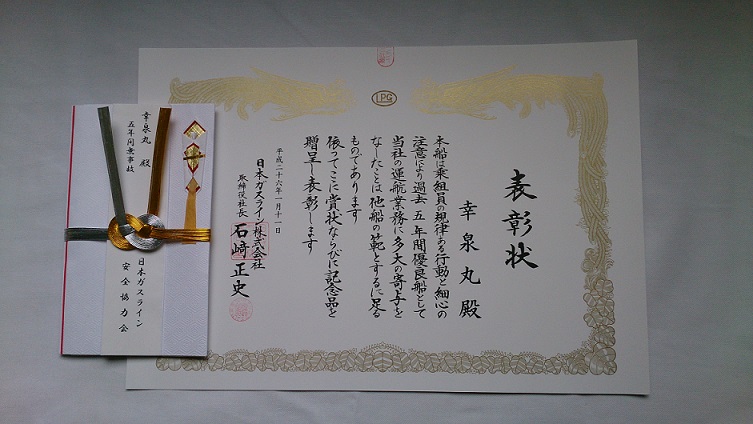 表彰状
幸泉丸殿
本船は乗組員の規律ある行動と細心の
注意により過去五年間優良船として
当社の運航業務に多大の寄与を
なしたことは他船の範とするに足る
ものであります
依ってここに賞状ならびに記念品を
贈呈し表彰します
平成二十六年一月十一日
日本ガスライン株式会社
取締役社長 石﨑正史
LPG
幸泉丸殿
五年間無事故
日本ガスライン
安全協力会